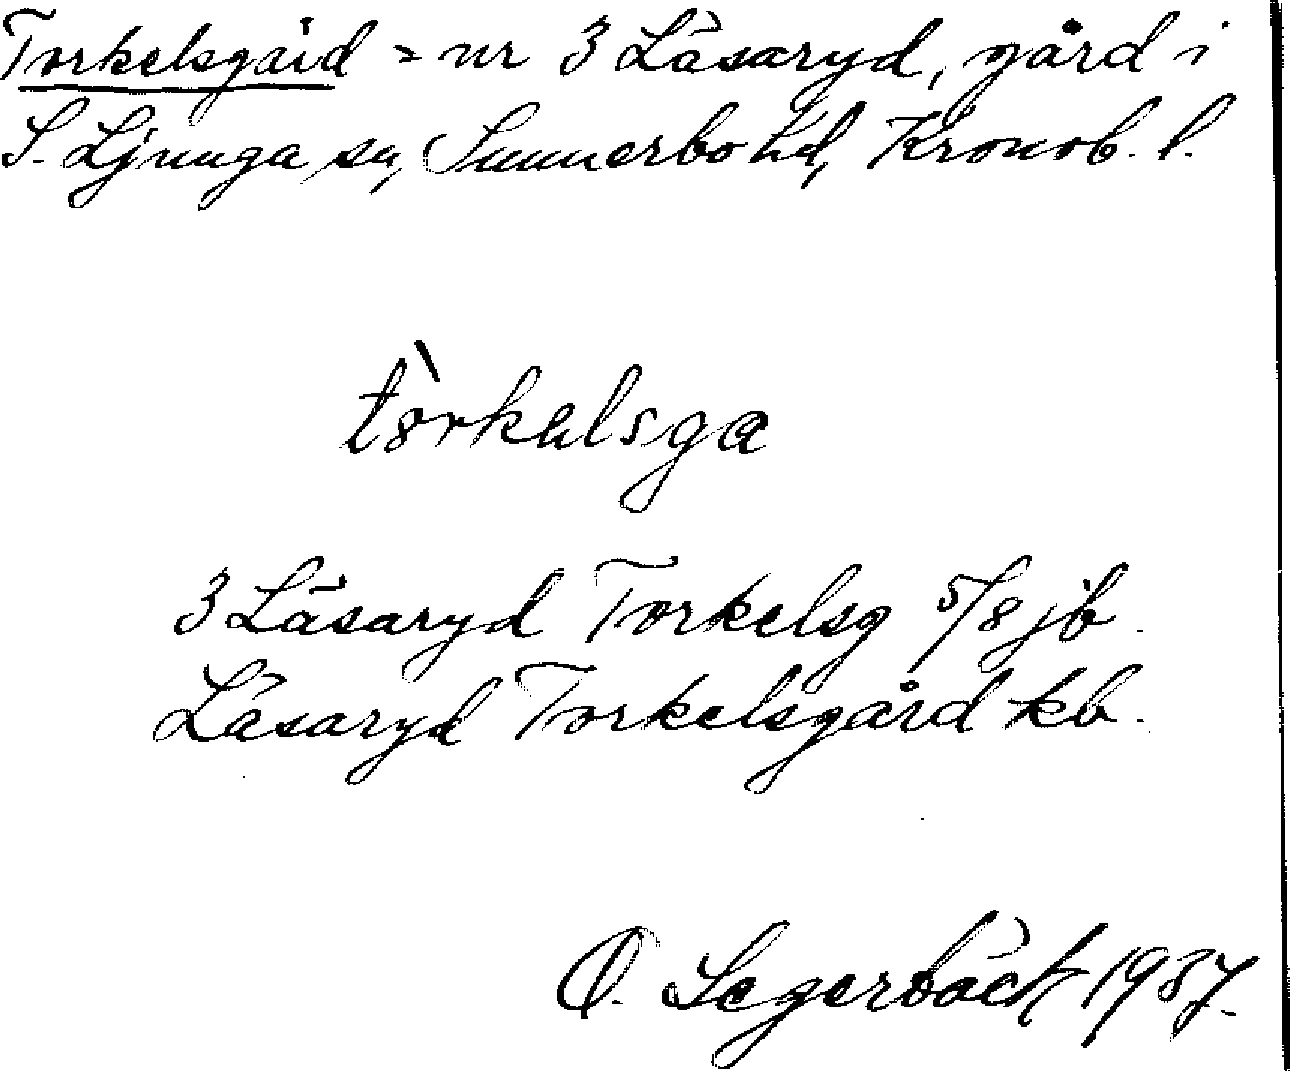 Torkelsgård = nr 3 Läsaryd, gård i
S. Ljunga sn, Sunnerbo hd, Kronob. l.
tòrkelsga
3 Läsaryd Torkelsg 5/8 jb.
Läsaryd Torkelsgård kb.
O. Segerbäck 1937.